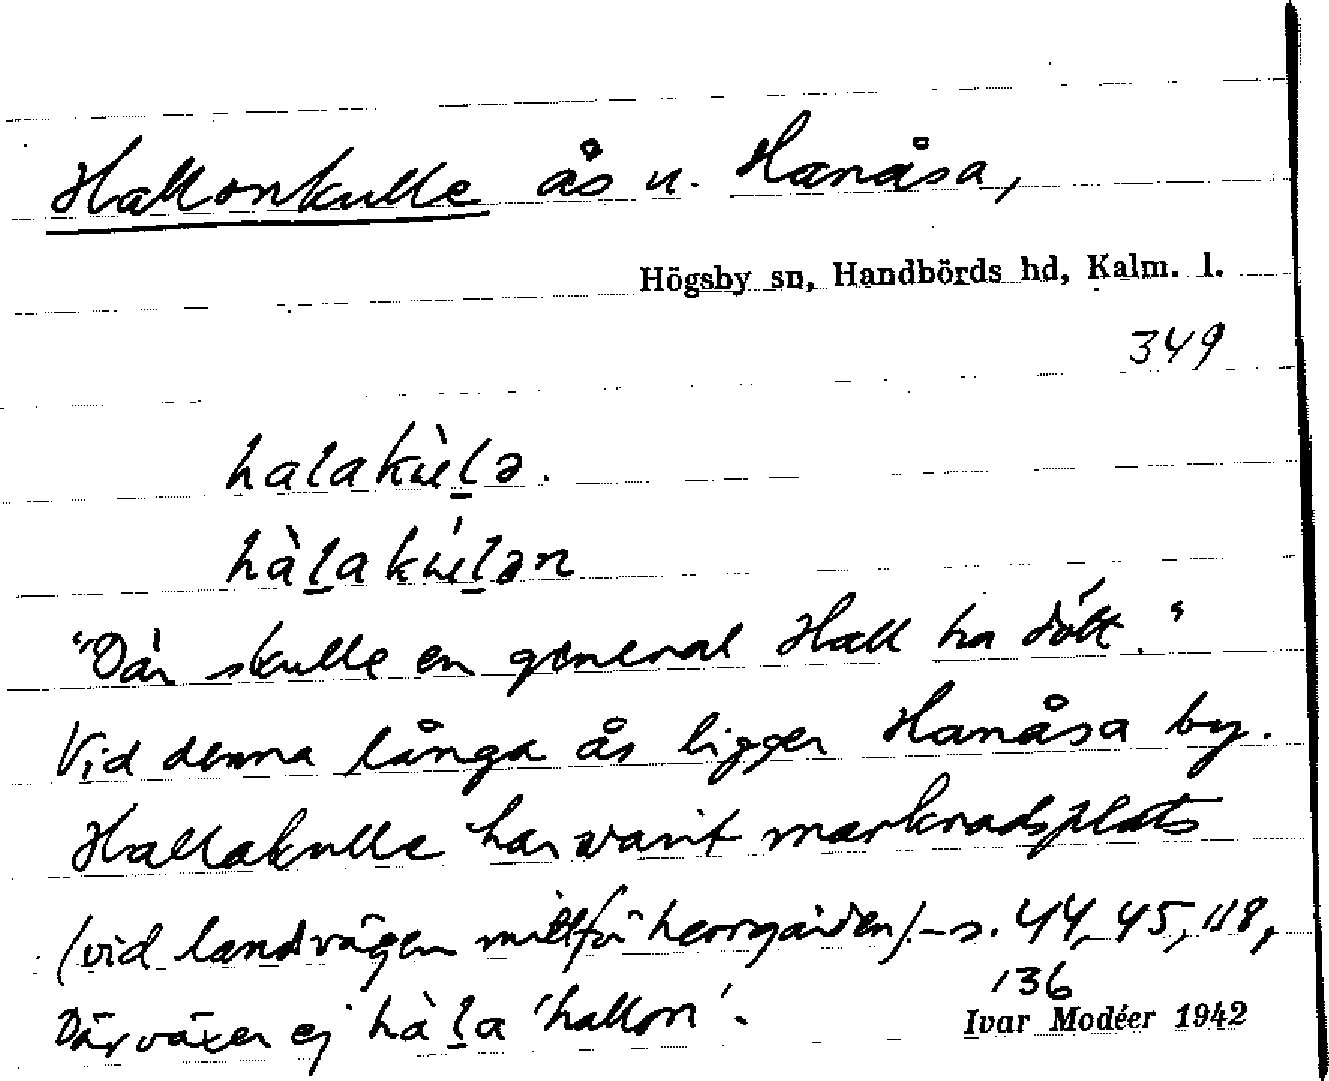 Hallonkulle ås u. Hanåsa,
Högsby sn, Handbörds hd, Kalm. l.
349
halakùl̲ə.
hàl̲akúl̲ən
"Där skulle en general Hall ha dött."
Vid denna långa ås ligger Hanåsa by.
Hallakulle har varit marknadsplats
(vid landvägen mittför herrgården). – s. 44, 45, 118,
136
Där växer ej hàl̲a 'hallon'.
Ivar Modéer 1942